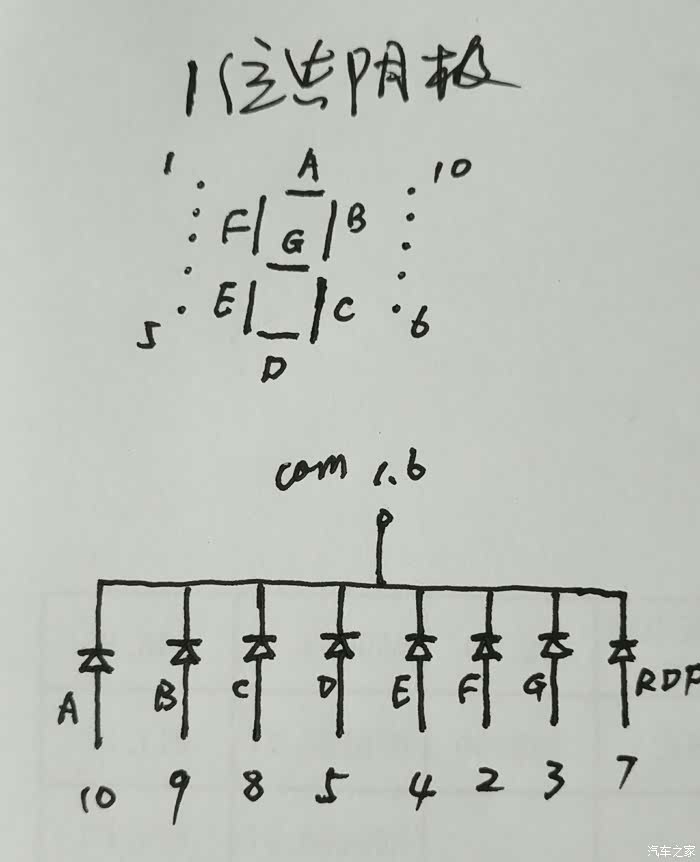 1位共阴极
1 A 10
F B
G
E C
5 6
D
com 1.6
A B C D E F G RDP
10 9 8 5 4 2 3 7
汽车之家